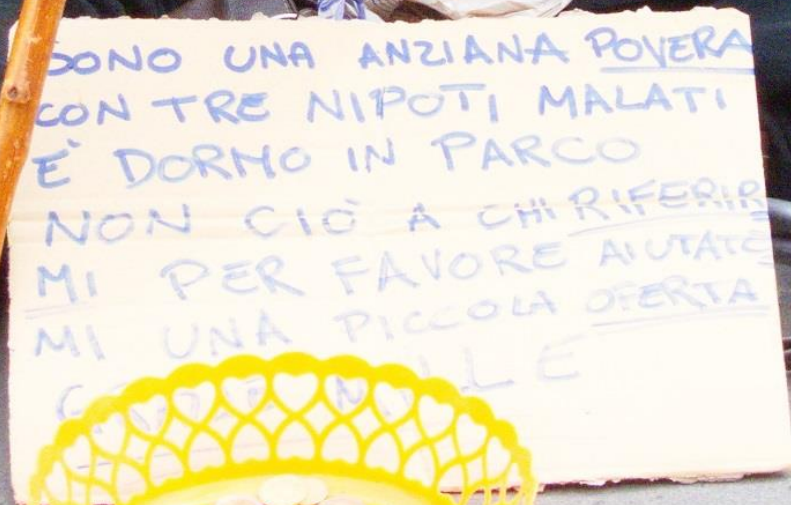 SONO UNA ANZIANA POVERA
CON TRE NIPOTI MALATI
E' DORMO IN PARCO
NON CIÒ A CHI RIFERIR
MI PER FAVORE AIUTATE
MI UNA PICCOLA OFERTA
MILLE